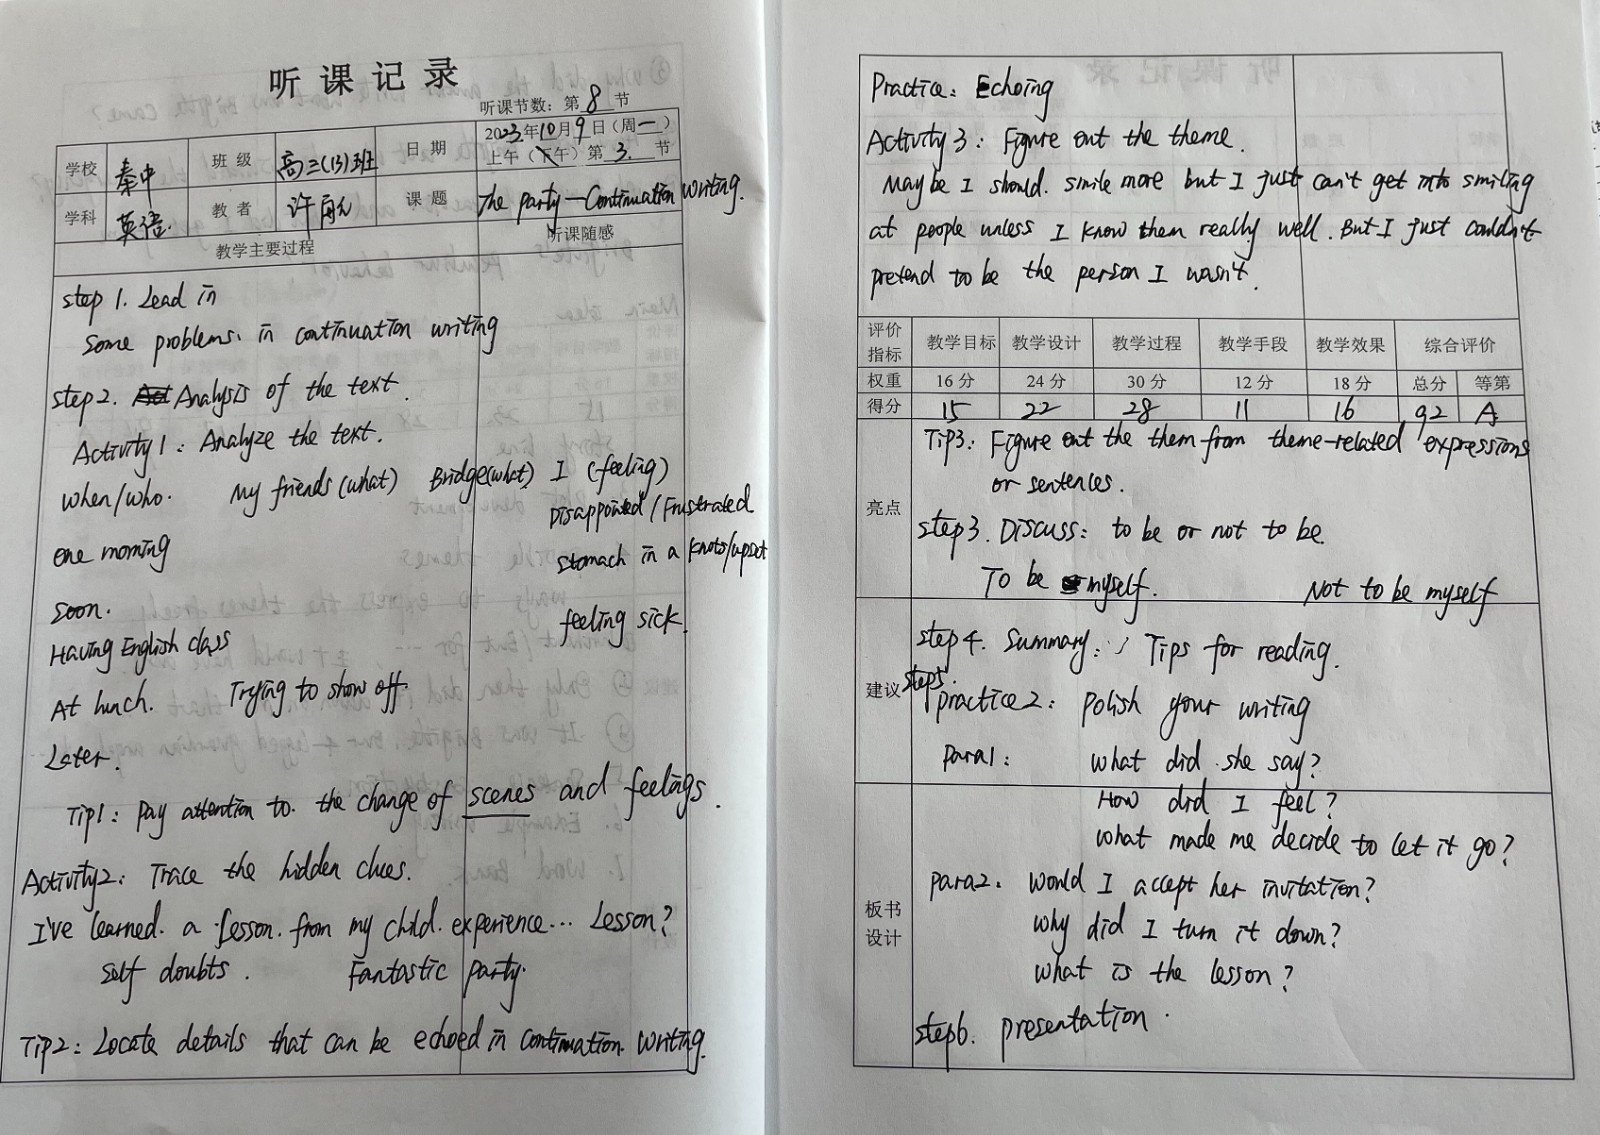 听课记录
听课节数：第8节
学校 秦中 班级 高三(13)班 日期 2023年10月9日（周一）
上午（下午）第3节
学科 英语. 教者 许 课题 The party—Continuation writing.
教学主要过程 听课随感
step 1. Lead in
Some problems. in continuation writing
step2. Analysis of the text.
Activity1: Analyze the text.
when/who. My friends (what) Bridge(what) I (feeling)
Disappointed/Frustrated
one morning stomach in a knots/upset
soon. feeling sick.
Having English class
At lunch. Trying to show off.
Later.
Tip1: Pay attention to. the change of scenes and feelings.
Activity2: Trace the hidden clues.
I've learned. a lesson. from my child. experience... Lesson?
self doubts. Fantastic party.
Tip2: Locate details that can be echoed in continuation. writing.
Practice: Echoing
Activity 3: Figure out the theme.
Maybe I should. smile more but I just can't get into smiling
at people unless I know them really well. But I just couldn't
pretend to be the person I wasn't.
评价指标 教学目标 教学设计 教学过程 教学手段 教学效果 综合评价
权重 16分 24分 30分 12分 18分 总分 等第
得分 15 22 28 11 16 92 A
亮点
Tip3: Figure out the them from theme-related expressions
or sentences.
step3. Discuss: to be or not to be.
To be myself. Not to be myself
建议
step4. Summary: Tips for reading.
step5.
practice2: polish your writing
para1: what did she say?
How did I feel?
what made me decide to let it go?
板书设计
para2: would I accept her invitation?
why did I turn it down?
what is the lesson?
step6. presentation.